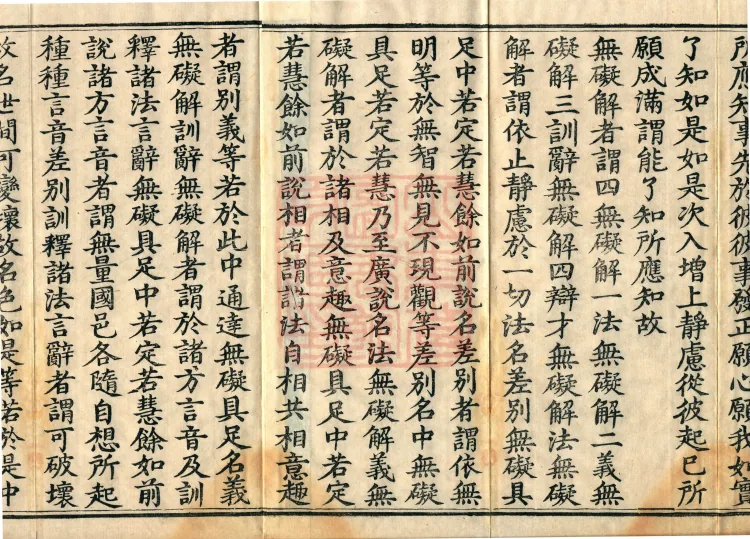 所應知事先於彼彼事發正願心願我如實
了知如是如是次入增上靜慮從彼起已所
願成滿謂能了知所應知故
無礙解者謂四無礙解一法無礙解二義無
礙解三訓辭無礙解四辯才無礙解法無礙
解者謂依止靜慮於一切法名差別無礙具
足中若定若慧餘如前說名差別者謂依無
明等於無智無見不現觀等差別名中無礙
具足若定若慧乃至廣說名法無礙解義無
礙解者謂於諸相及意趣無礙具足中若定
若慧餘如前說相者謂諸法自相共相意趣
者謂別義等若於此中通達無礙具足名義
無礙解訓辭無礙解者謂於諸方言音及訓
釋諸法言辭無礙具足中若定若慧餘如前
說諸方言音者謂無量國邑各隨自想所起
種種言音差別訓釋諸法言辭者謂可破壞
故名世間可變壞故名色如是等若於是中